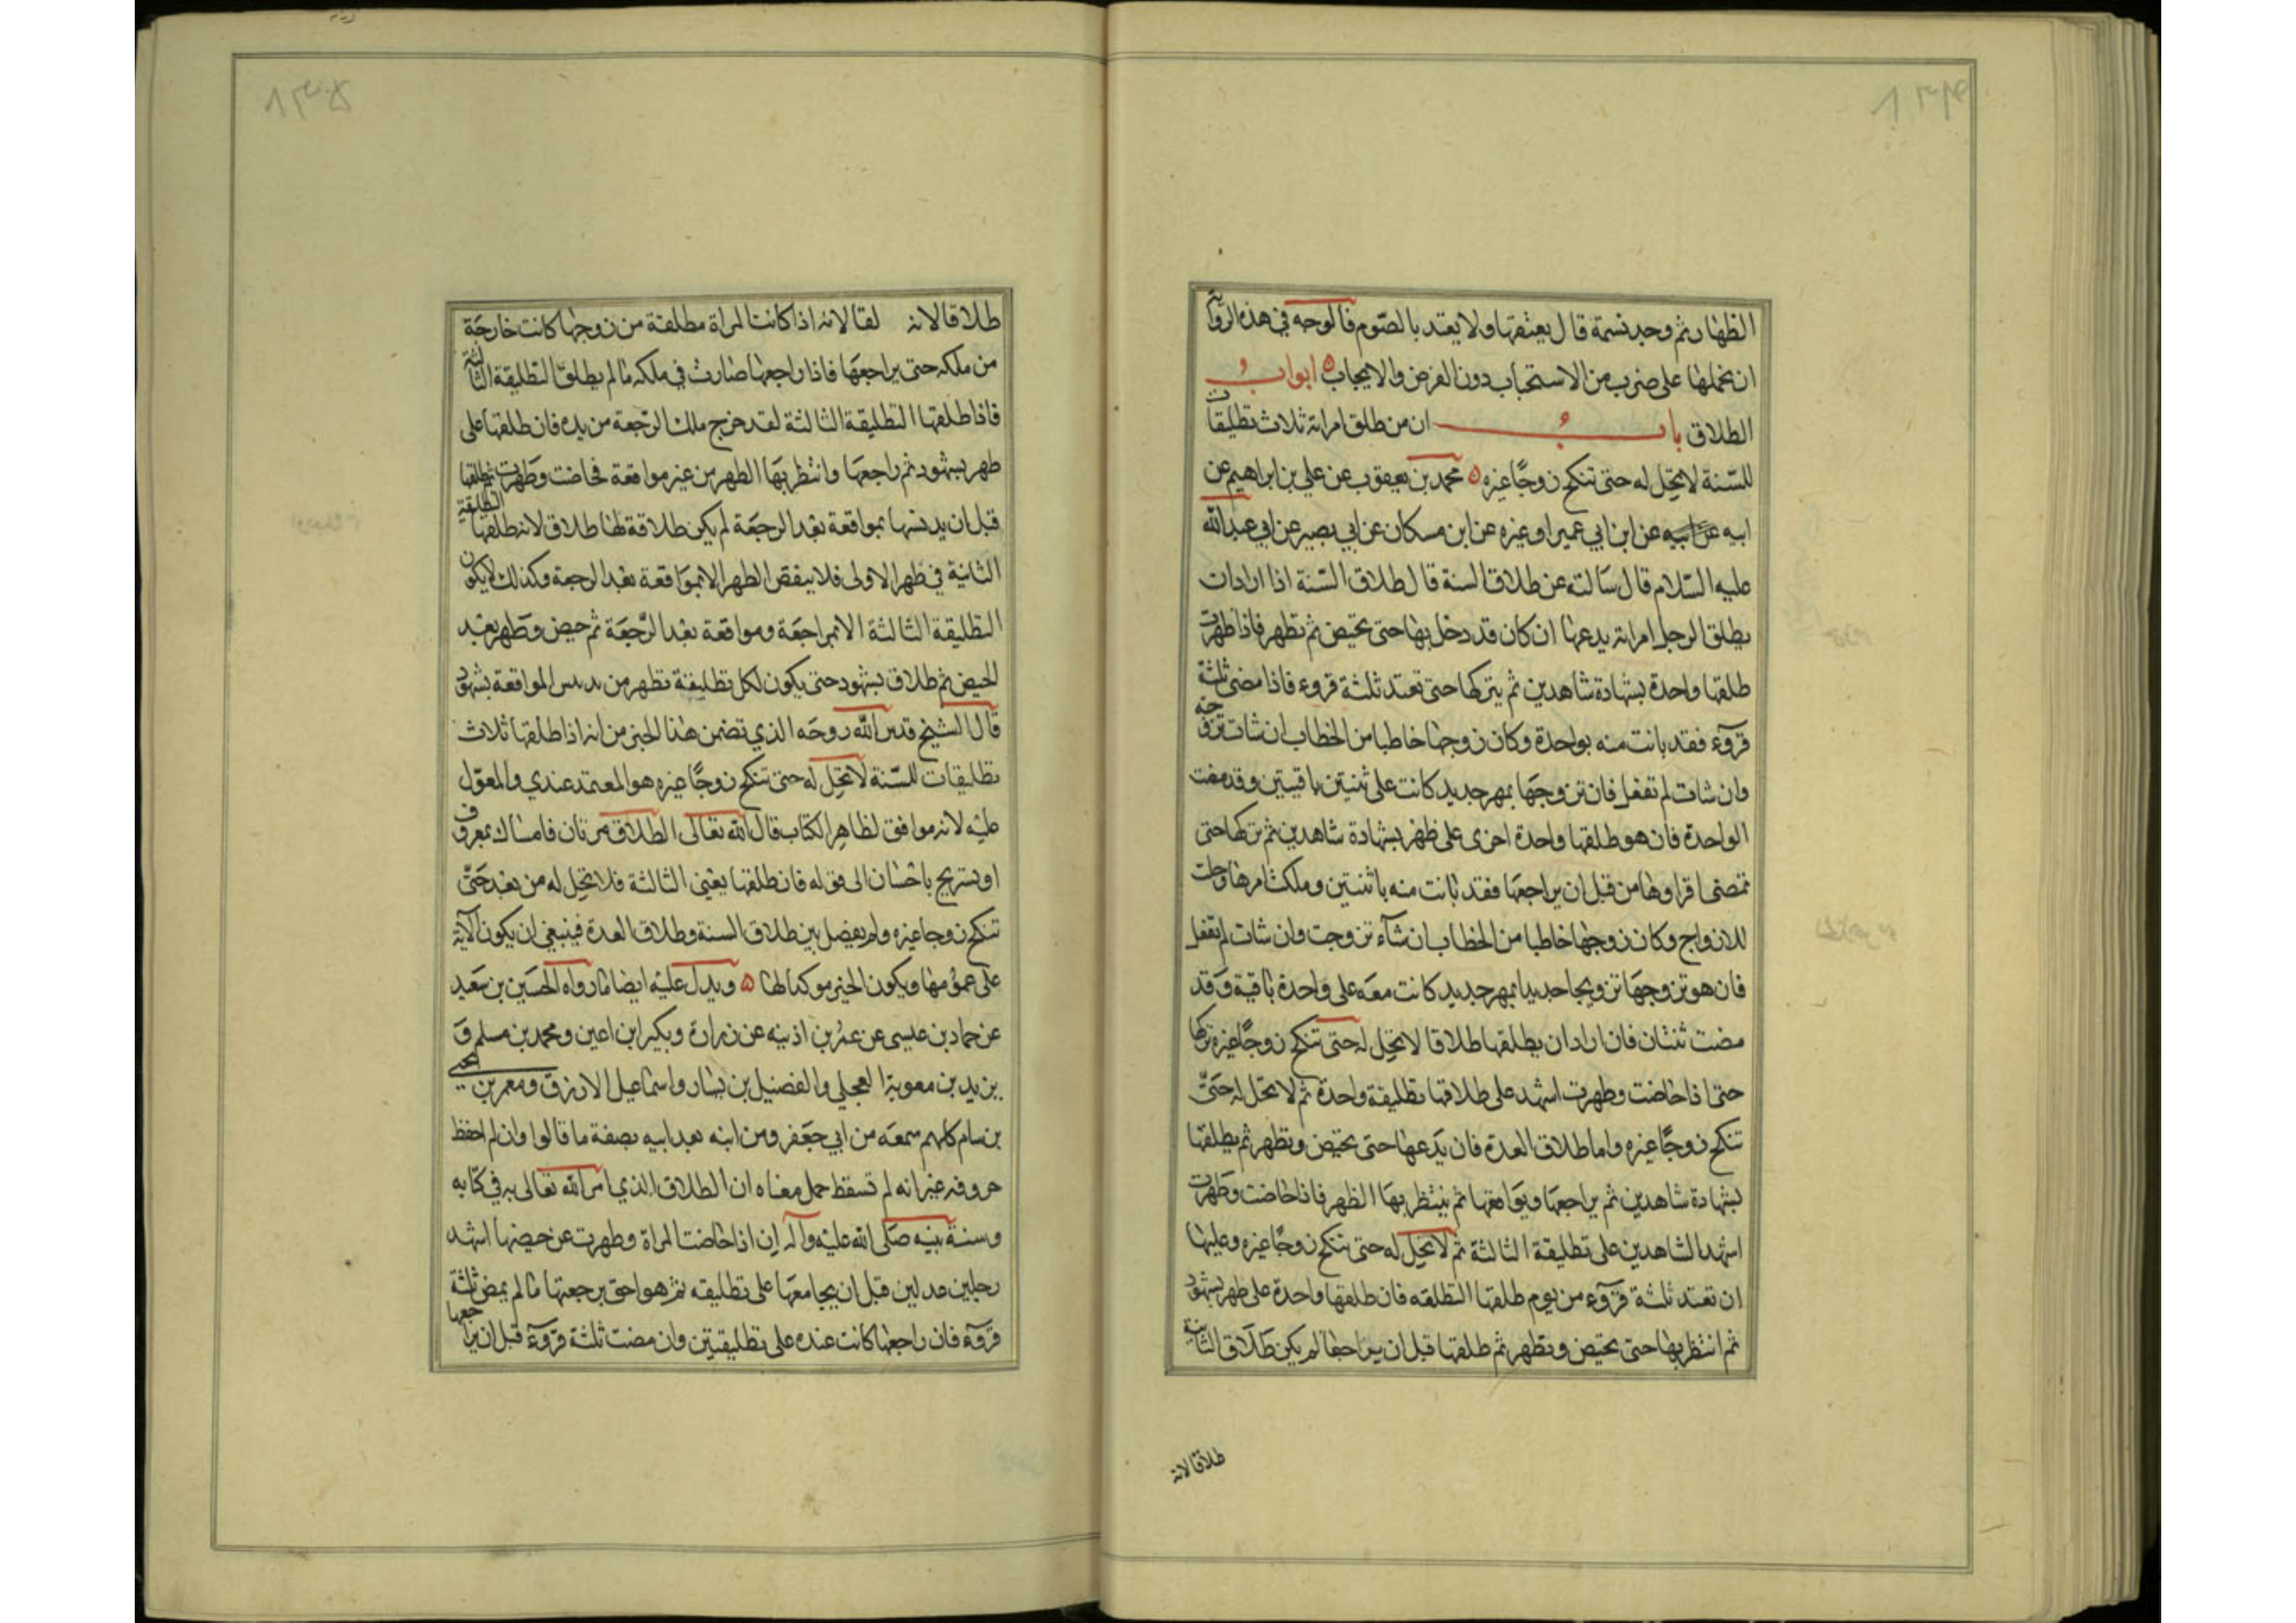 الظهار ثم وجد نسمة قال يعتقها ولا يعتد بالصوم فالوجه في هذه الرواية
ان نحملها على ضرب من الاستحباب دون الفرض والايجاب ابواب
الطلاق باب ان من طلق امراته ثلاث تطليقات
للسنة لا تحل له حتى تنكح زوجا غيره محمد بن يعقوب عن علي بن ابراهيم عن
ابيه عن ابيه عن ابن ابي عمير او غيره عن ابن مسكان عن ابي بصير عن ابي عبد الله
عليه السلام قال سالته عن طلاق السنة قال طلاق السنة اذا اراد ان
يطلق الرجل امراته يدعها ان كان قد دخل بها حتى تحيض ثم تطهر فاذا طهرت
طلقها واحدة بشهادة شاهدين ثم يتركها حتى تعتد ثلثة قروء فاذا مضى ثلثة
قروء فقد بانت منه بواحدة وكان زوجها خاطبا من الخطاب ان شات تزوجته
وان شات لم تفعل فان تزوجها بمهر جديد كانت على ثنتين باقيتين وقد مضت
الواحدة فان هو طلقها واحدة اخرى على طهر بشهادة شاهدين ثم تركها حتى
تمضي اقراوها من قبل ان يراجعها فقد بانت منه باثنتين وملكت امرها وحلت
للازواج وكان زوجها خاطبا من الخطاب ان شاء تزوجت وان شات لم تفعل
فان هو تزوجها تزويجا جديدا بمهر جديد كانت معه على واحدة باقية وقد
مضت ثنتان فان اراد ان يطلقها طلاقا لا تحل له حتى تنكح زوجا غيره تركها
حتى اذا حاضت وطهرت اشهد على طلاقها تطليقة واحدة ثم لا تحل له حتى
تنكح زوجا غيره واما طلاق العدة فان يدعها حتى تحيض وتطهر ثم يطلقها
بشهادة شاهدين ثم يراجعها ويواقعها ثم ينتظر بها الطهر فاذا حاضت وطهرت
اشهد الشاهدين على تطليقة الثالثة ثم لا تحل له حتى تنكح زوجا غيره وعليها
ان تعتد ثلثة قروء من يوم طلقها التطلقه فان طلقها واحدة على طهر بشهود
ثم انتظر بها حتى تحيض وتطهر ثم طلقها قبل ان يراجعها لم يكن طلاق الثانية
طلاقا لانه
طلاقا لانه لقا لانه اذا كانت المراة مطلقة من زوجها كانت خارجة
من ملكه حتى يراجعها فاذا راجعها صارت في ملكه ما لم يطلق التطليقة الثالثة
فاذا طلقها التطليقة الثالثة لقد خرج ملك الرجعة من يده فان طلقها على
طهر بشهود ثم راجعها وانتظر بها الطهر من غير مواقعة فحاضت وطهرت ثم طلقها
قبل ان يدنسها بمواقعة بعد الرجعة لم يكن طلاقه لها طلاق لانه طلقها التطلقة
الثانية في طهر الاولى فلا ينقض الطهر الا بمواقعة بعد الرجعة وكذلك لا يكون
التطليقة الثالثة الا بمراجعة ومواقعة بعد الرجعة ثم حيض وطهر بعد
الحيض ثم طلاق بشهود حتى يكون لكل تطليقة تطهر من المواقعة بشهود
قال الشيخ قدس الله روحه الذي تضمن هذا الخبر من انه اذا طلقها ثلاث
تطليقات للسنة لا تحل له حتى تنكح زوجا غيره هو المعتمد عندي والمعول
عليه لانه موافق لظاهر الكتاب قال الله تعالى الطلاق مرتان فامساك بمعروف
او تسريح باحسان الى قوله فان طلقها يعني الثالثة فلا تحل له من بعد حتى
تنكح زوجا غيره ولم يفصل بين طلاق السنة وطلاق العدة فينبغي ان يكون الآية
على عمومها ويكون الخبر موكدا لها ويدل عليه ايضا ما رواه الحسين بن سعيد
عن حماد بن عيسى عن عمر بن اذينه عن زرارة وبكير ابن اعين ومحمد بن مسلم و
بريد بن معوية العجلي والفضيل بن يسار واسماعيل الازرق ومعمر بن يحيى
بن سام كلهم سمعه من ابي جعفر ومن ابنه بعد ابيه بصفة ما قالوا وان لم احفظ
حروفه غير انه لم تسقط جمل معناه ان الطلاق الذي امر الله تعالى به في كتابه
وسنة نبيه صلى الله عليه وآله ان اذا حاضت المراة وطهرت عن حيضها اشهد
رجلين عدلين قبل ان يجامعها على تطليقه ثم هو احق برجعتها ما لم يمض ثلثة
قروء فان راجعها كانت عنده على تطليقتين وان مضت ثلثة قروء قبل ان يراجعها